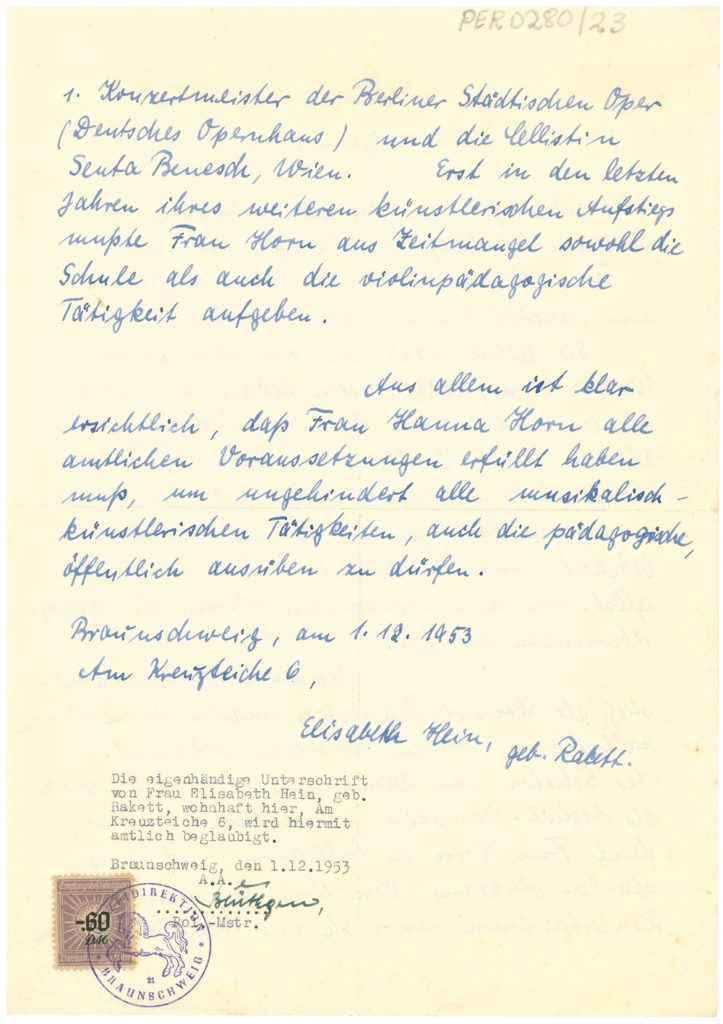 PER 0280/23
1. Konzertmeister der Berliner Städtischen Oper
(Deutsches Opernhaus) und die Cellistin
Senta Benesch, Wien. Erst in den letzten
Jahren ihres weiteren künstlerischen Aufstiegs
mußte Frau Horn aus Zeitmangel sowohl die
Schule als auch die violinpädagogische
Tätigkeit aufgeben.
Aus allem ist klar
ersichtlich, daß Frau Hanna Horn alle
amtlichen Voraussetzungen erfüllt haben
muß, um ungehindert alle musikalisch-
künstlerischen Tätigkeiten, auch die pädagogische,
öffentlich ausüben zu dürfen.
Braunschweig, am 1.12.1953
Am Kreuzteiche 6,
Elisabeth Hein, geb. Rakett.
Die eigenhändige Unterschrift
von Frau Elisabeth Hein, geb.
Rakett, wohnhaft hier, Am
Kreuzteiche 6, wird hiermit
amtlich beglaubigt.
Braunschweig, den 1.12.1953
A.A.
Blüthgen,
Pol.-Mstr.
-.60
DM
BRAUNSCHWEIG
21